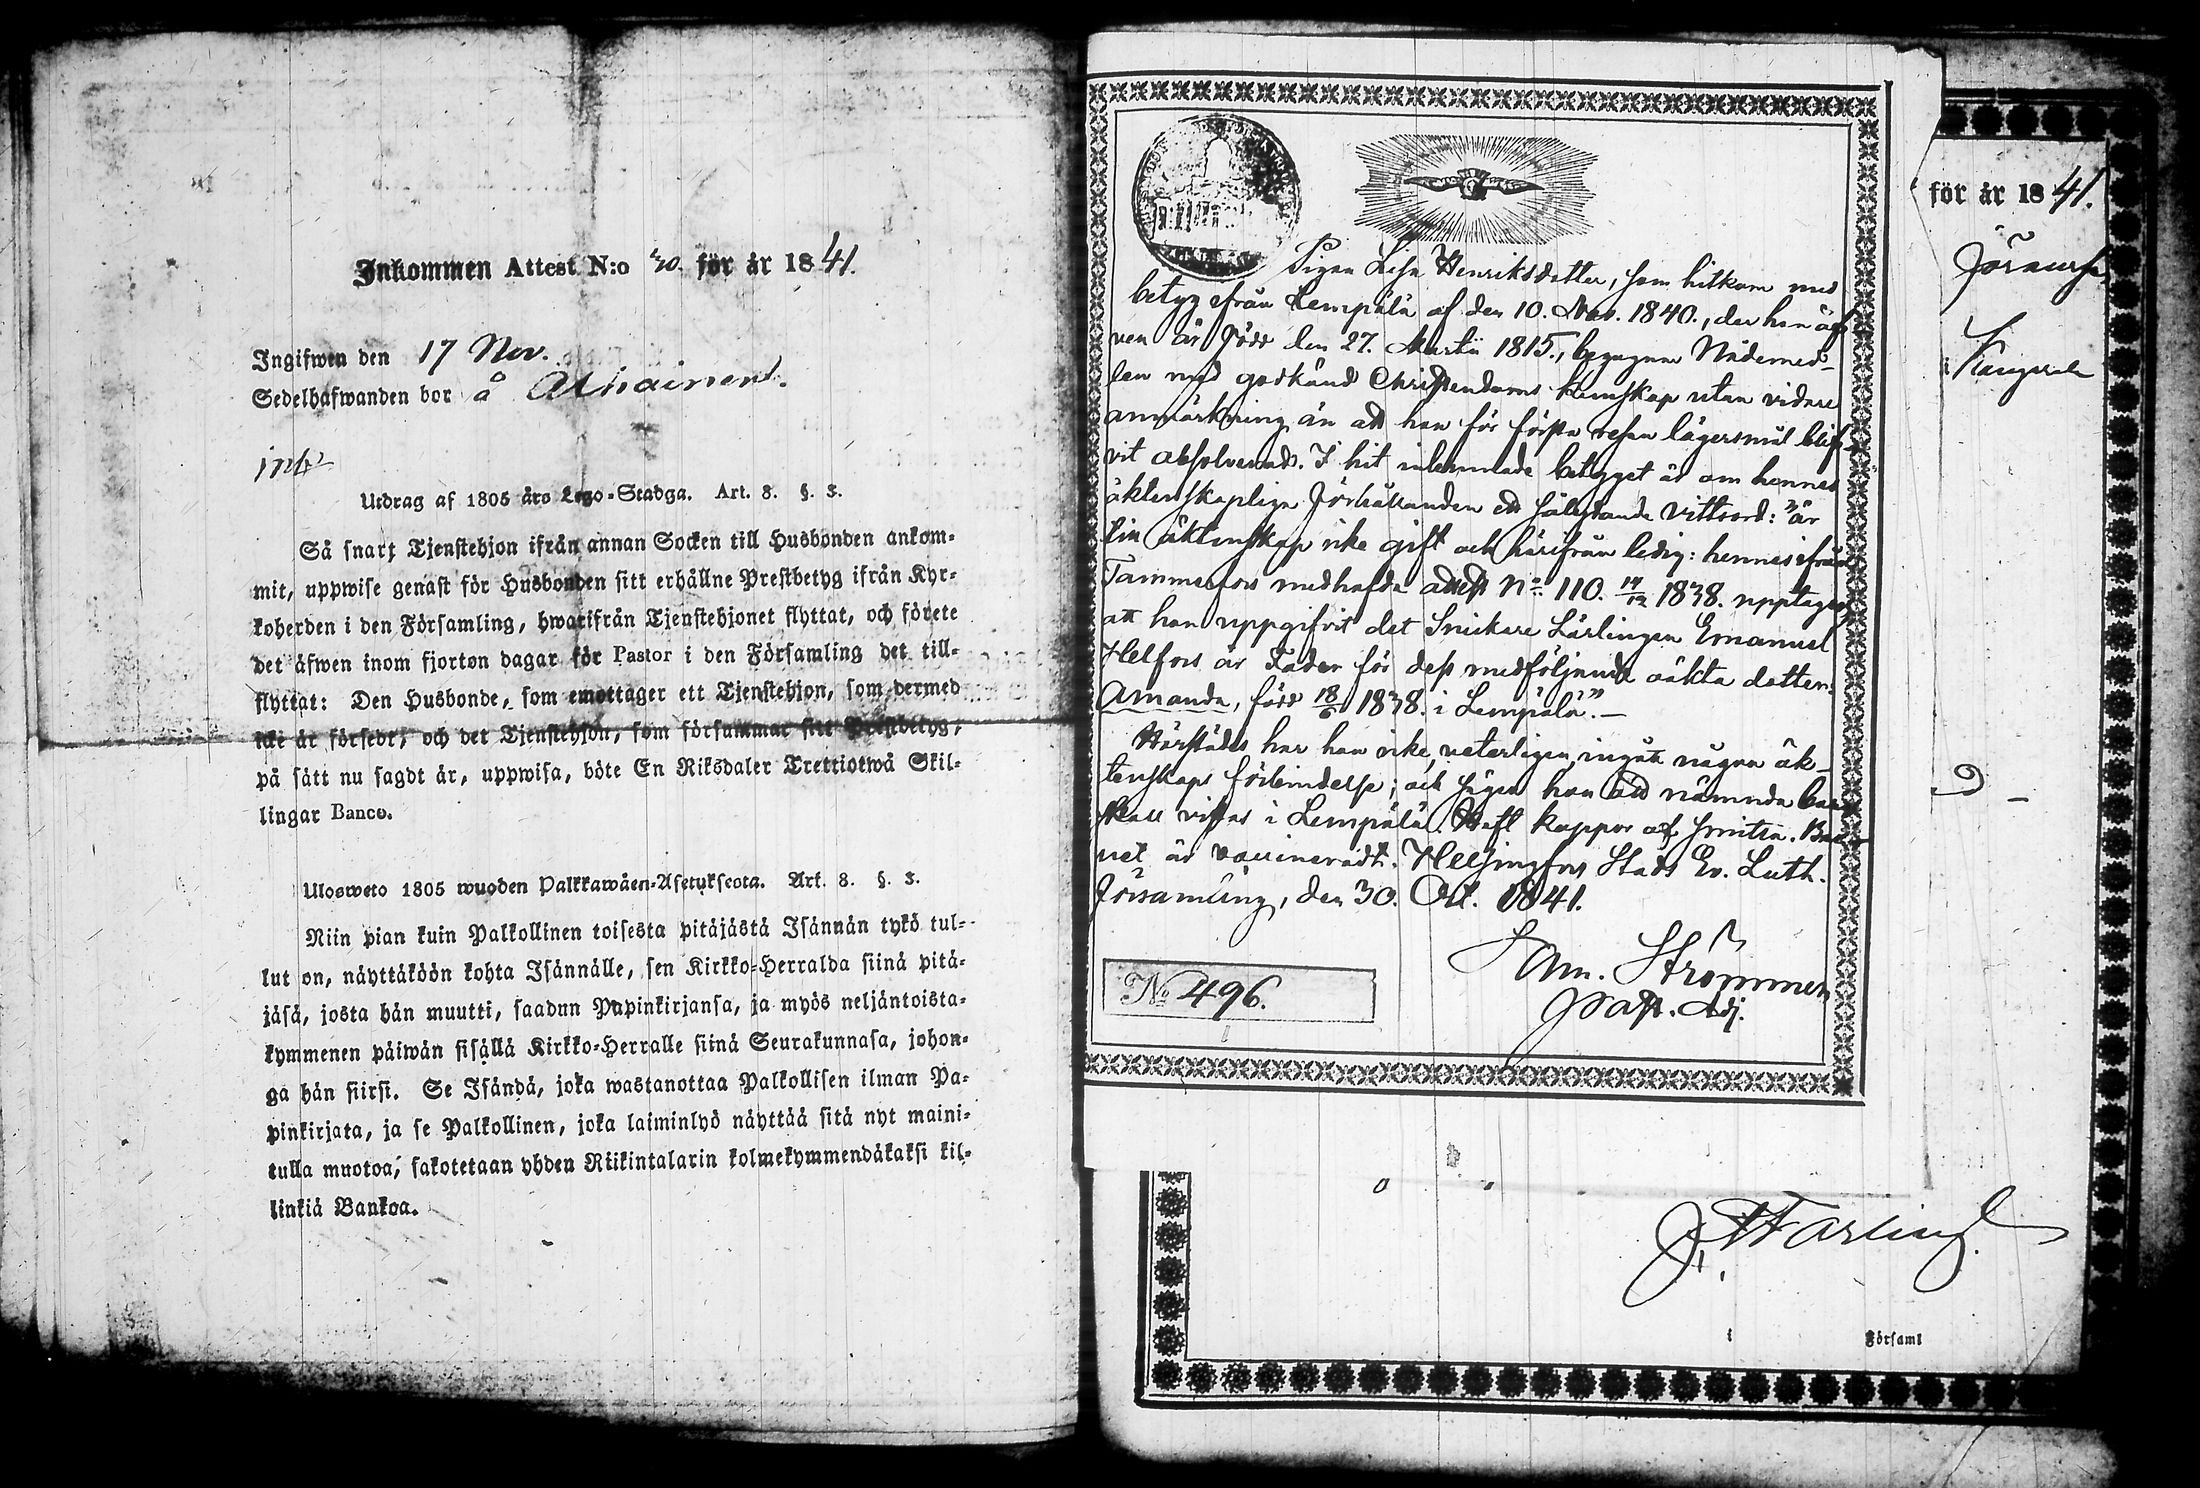 Inkommen Attest N:o 30. för år 1841.
Ingifwen den 17 Nov.
Sedelhafwanden bor å
Utdrag af 1805 års Lego-Stadga. Art. 8. §. 3.
Så snart Tjenstehjon ifrån annan Socken till Husbonden ankom-
mit, uppwise genast för Husbonden sitt erhållne Prestbetyg ifrån Kyr-
koherden i den Församling, hwarifrån Tjenstehjonet flyttat, och förete
det äfwen inom fjorton dagar för Pastor i den Församling det till-
flyttat: Den Husbonde, som emottager ett Tjenstehjon, som dermed
icke är försedt, och det Tjenstehjon, som försummar sitt Prestbetyg,
på sätt nu sagdt är, uppwisa, böte En Riksdaler Trettiotwå Skil-
lingar Banco.
Ulosweto 1805 wuoden Palkkawäen-Asetuksesta. Art. 8. §. 3.
Niin pian kuin Palkollinen toisesta pitäjästä Isännän tykö tul-
lut on, näyttäköön kohta Isännälle, sen Kirkko-Herralda siinä pitä-
jäsä, josta hän muutti, saadun Papinkirjansa, ja myös neljäntoista-
kymmenen päiwän sisällä Kirkko-Herralle siinä Seurakunnasa, johon-
ga hän siirsi. Se Isändä, joka wastanottaa Palkollisen ilman Pa-
pinkirjata, ja se Palkollinen, joka laiminlyö näyttää sitä nyt maini-
tulla muotoa, sakotetaan yhden Riikintalarin kolmekymmendäkaksi kil-
linkiä Bankoa.
Pigan Lisa Henriksdotter, som hitkom med
betyg från Lempälä af den 10. Nov. 1840., der hon äf
ven är född den 27. Martii 1815., begagnar Nådemed-
len med godkänd Christendoms kunskap utan vidare
anmärkning än att hon för första resan lägersmål blif-
vit absolverad. I hit inlemnade betyget är om hennes
äktenskapliga förhållanden ett följande vittsord: "är
till äktenskap icke gift och härifrån ledig: hennes ifrån
Tammerfors medhafda attest No 110. 14/12 1838. upptager
att hon uppgifvit det Snickare Lärlingen Emanuel
Helfors är Fader för dess medföljande oäkta dotter
Amanda, född 18/6 1838. i Lempälä". —
Härstädes har hon icke, veterligen, ingått någon äk-
tenskaps förbindelse; och säger hon att nämnda bar
skall vistas i Lempälä. Haft koppor af smitta. Bar
net är vaccineradt. Helsingfors Stads Ev. Luth.
församling, den 30. Oct. 1841.
Sam. Strömmer
Past. Adj.
No 496.
för år 1841.
Församl